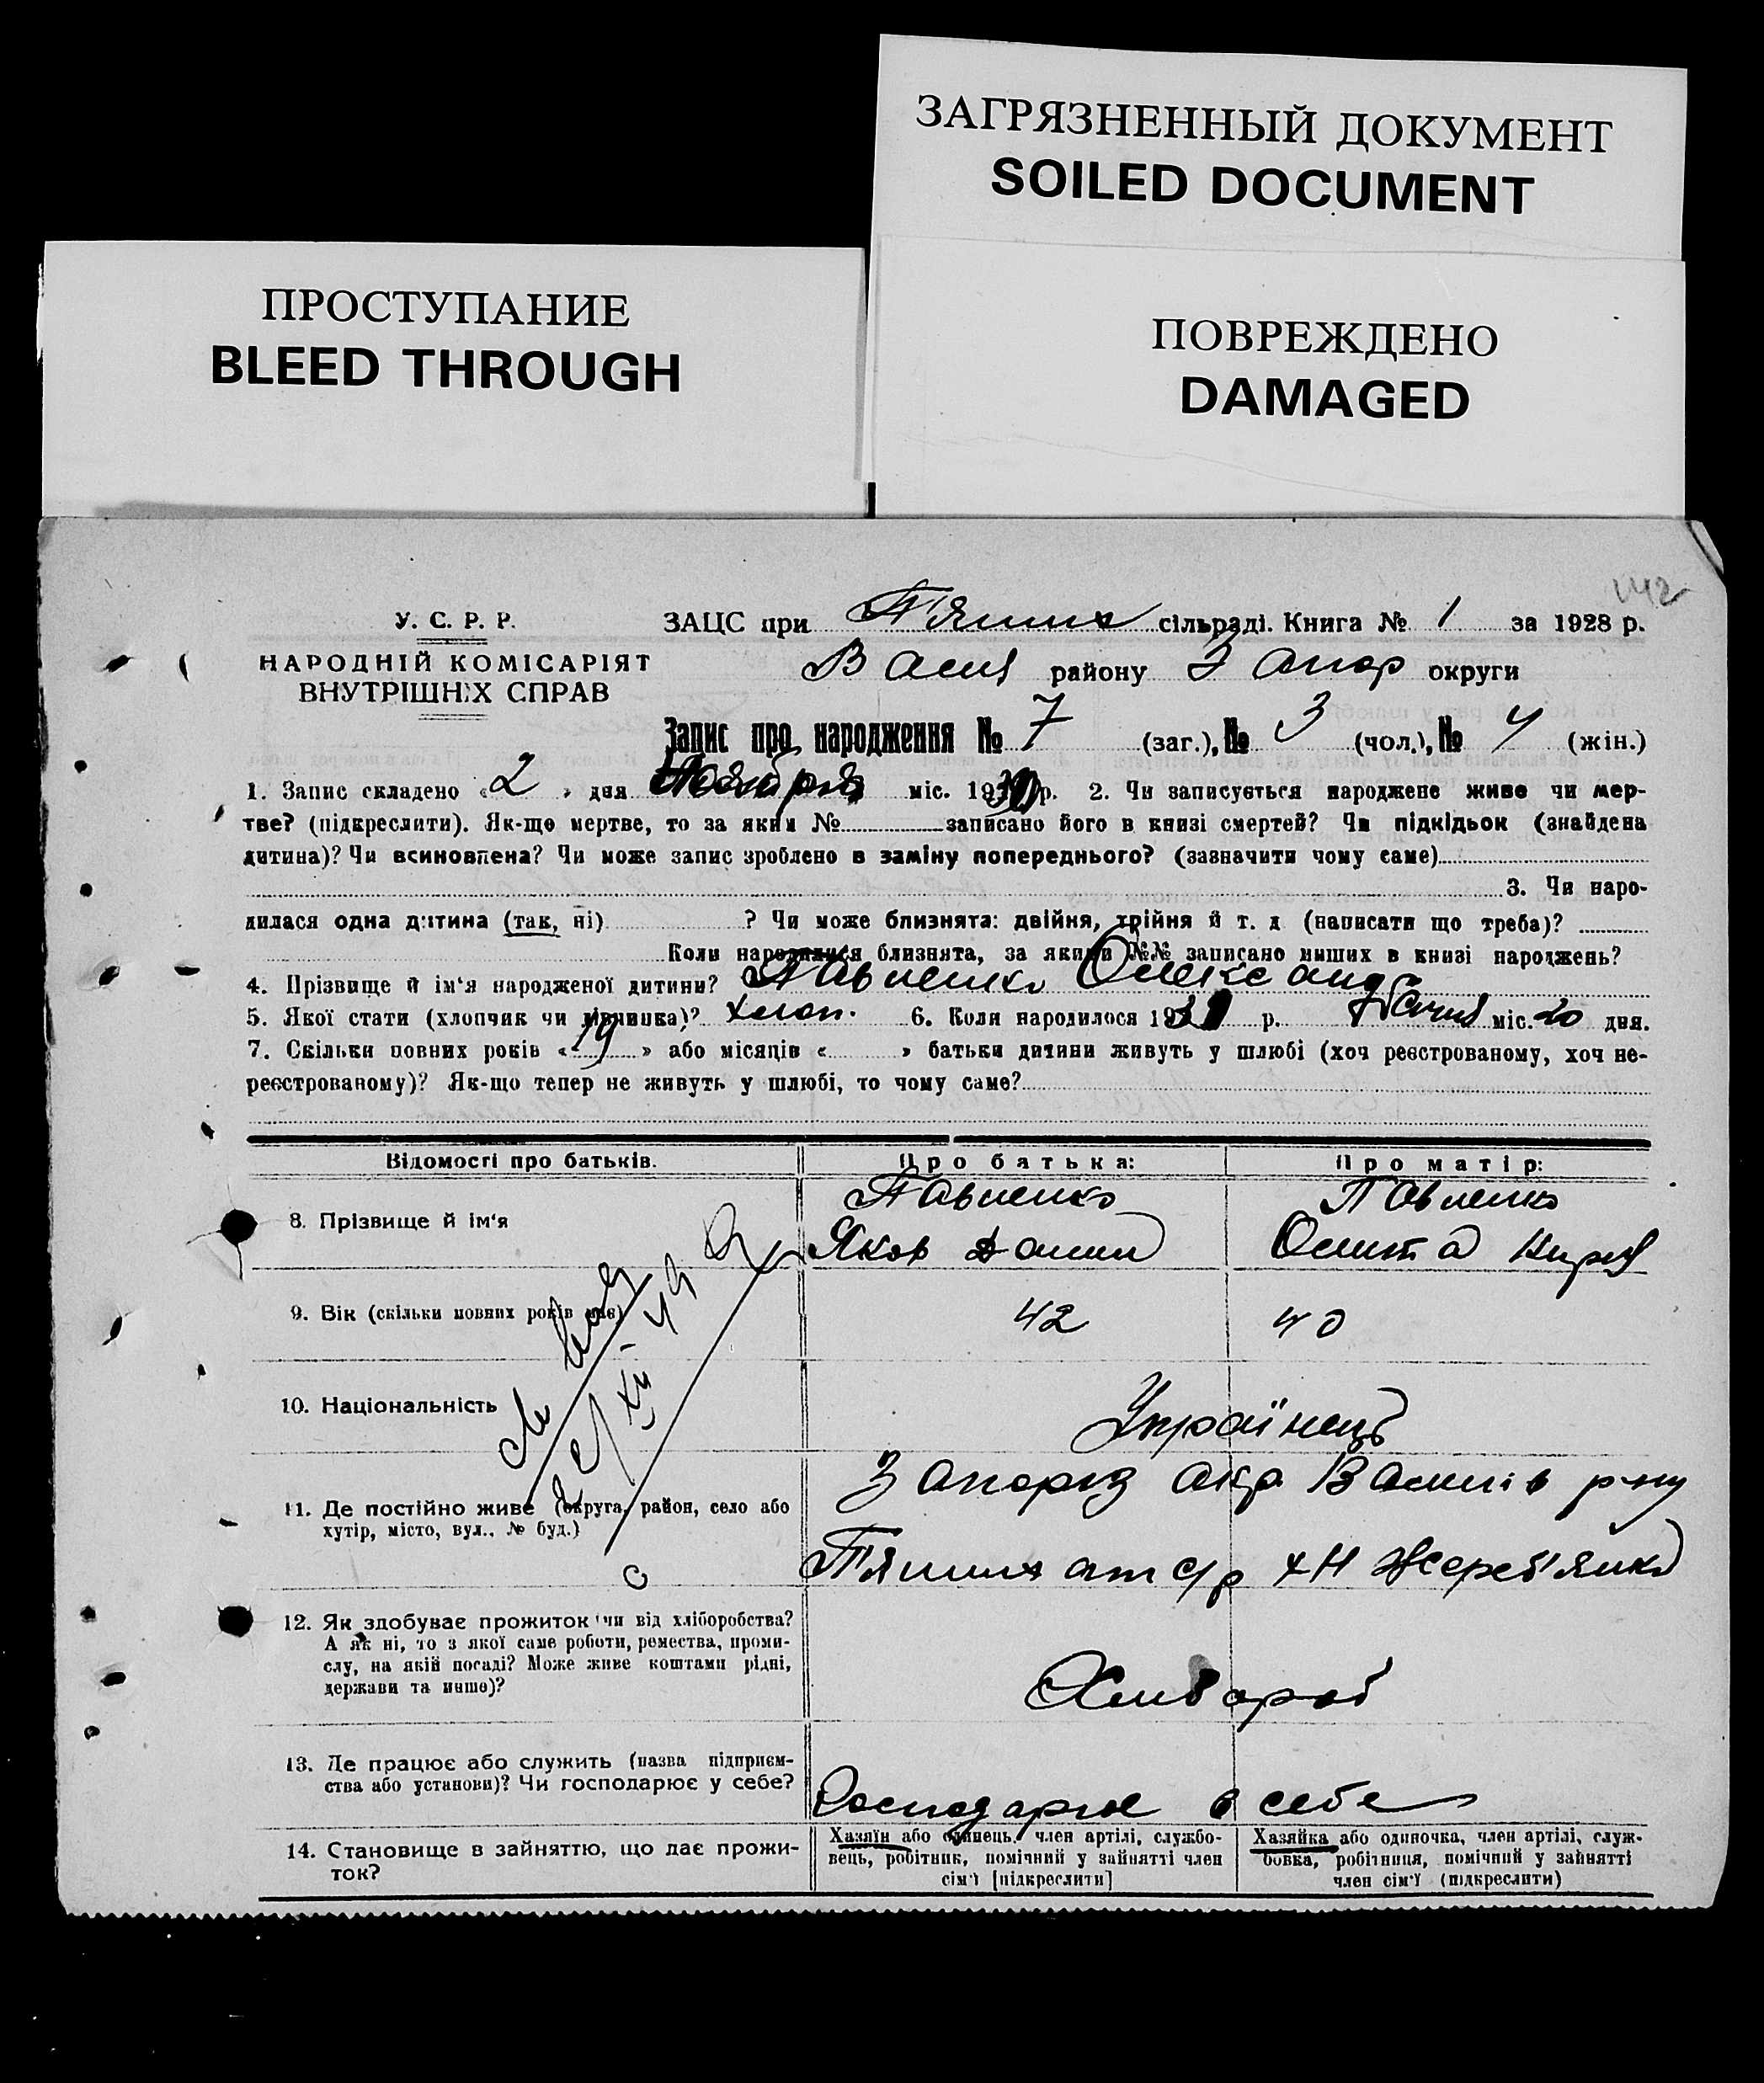 ЗАГРЯЗНЕННЫЙ ДОКУМЕНТ
SOILED DOCUMENT
ПРОСТУПАНИЕ
BLEED THROUGH
ПОВРЕЖДЕНО
DAMAGED
142
У. С. Р. Р.
НАРОДНІЙ КОМІСАРІЯТ
ВНУТРІШНІХ СПРАВ
ЗАЦС при сільраді. Книга № 1 за 1928 р.
Васил району Запор округи
Запис про народження № 7 (заг.), № 3 (чол.), № 4 (жін.)
1. Запис складено « 2 » дня міс. 19 р. 2. Чи записується народжене живе чи мер-
тве? (підкреслити). Як-що мертве, то за яким № записано його в книзі смертей? Чи підкідьок (знайдена
дитина)? Чи всиновлена? Чи може запис зроблено в заміну попереднього? (зазначити чому саме)
3. Чи наро-
дилася одна дитина (так, ні) ? Чи може близнята: двійня, трійня й т. д. (написати що треба)?
Коли народилися близнята, за якими №№ записано инших в книзі народжень?
4. Прізвище й ім'я народженої дитини? Павленко Олександ
5. Якої стати (хлопчик чи дівчинка)? хлоп. 6. Коли народилося 19 р. міс. 20 дня.
7. Скільки повних років « 19 » або місяців « » батьки дитини живуть у шлюбі (хоч реєстрованому, хоч не-
реєстрованому)? Як-що тепер не живуть у шлюбі, то чому саме?
Відомості про батьків.
Про батька:
Про матір:
8. Прізвище й ім'я
Павленко
Яков Данил
Павленко
Кирил
9. Вік (скільки повних років має)
42
40
10. Національність
Українець
11. Де постійно живе (округа, район, село або
хутір, місто, вул., № буд.)
Запоріз окр Василів р-ну
с/р х Н Жереб'янка
12. Як здобуває прожиток чи від хліборобства?
А як ні, то з якої саме роботи, ремества, проми-
слу, на якій посаді? Може живе коштами рідні,
держави та инше)?
Хлібороб
13. Де працює або служить (назва підприєм-
ства або установи)? Чи господарює у себе?
Господарює в себе
14. Становище в зайняттю, що дає прожи-
ток?
Хазяїн або одинець, член артілі, службо-
вець, робітник, помічний у зайнятті член
сім'ї [підкреслити]
Хазяйка або одиночка, член артілі, служ-
бовка, робітниця, помічний у зайнятті
член сім'ї (підкреслити)